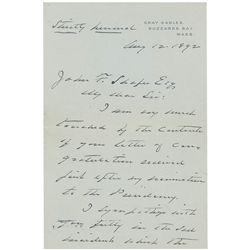 Strictly personal
GRAY GABLES,
BUZZARDS BAY,
MASS.
Aug 12. 1892
John F. Shafer Esq
My dear Sir:
I am very much
touched by the contents
of your letter of con-
gratulation received
just after my nomination
to the Presidency.
I sympathize with
you fully in the sad
incidents which the